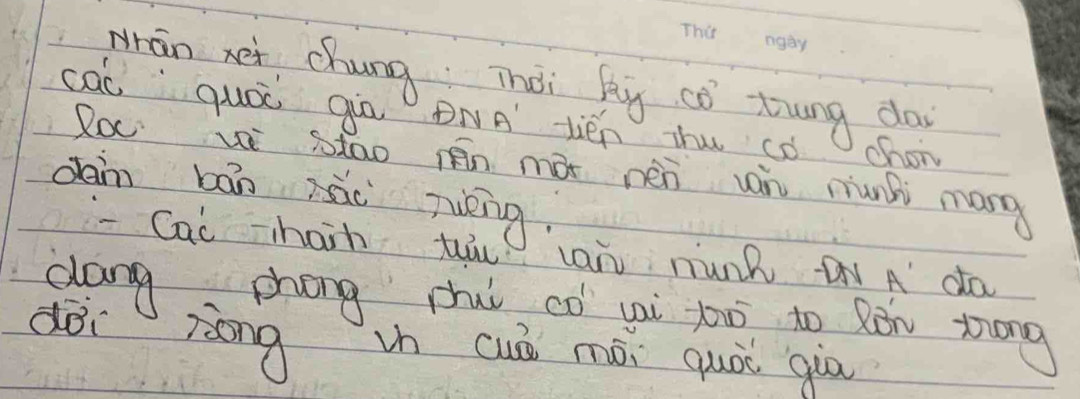 Thứ ngày
Nhận xét chung: Thời kỳ cổ trung đại
các quốc gia ĐNÁ tiếp thu có chọn
lọc và stạo nên một nền văn minh mang
đậm bản sắc riêng
- Các thành tựu văn minh ĐNÁ đa
dạng phong phú có vai trò to lớn trong
đời sống vh của mỗi quốc gia